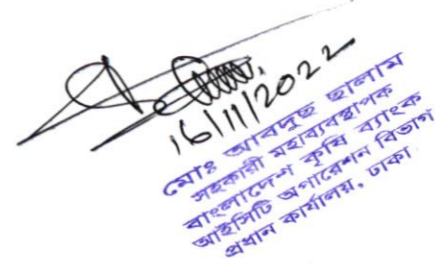 16/11/2022
মোঃ আবদুছ ছালাম
সহকারী মহাব্যবস্থাপক
বাংলাদেশ কৃষি ব্যাংক
আইসিটি অপারেশন বিভাগ
প্রধান কার্যালয়, ঢাকা